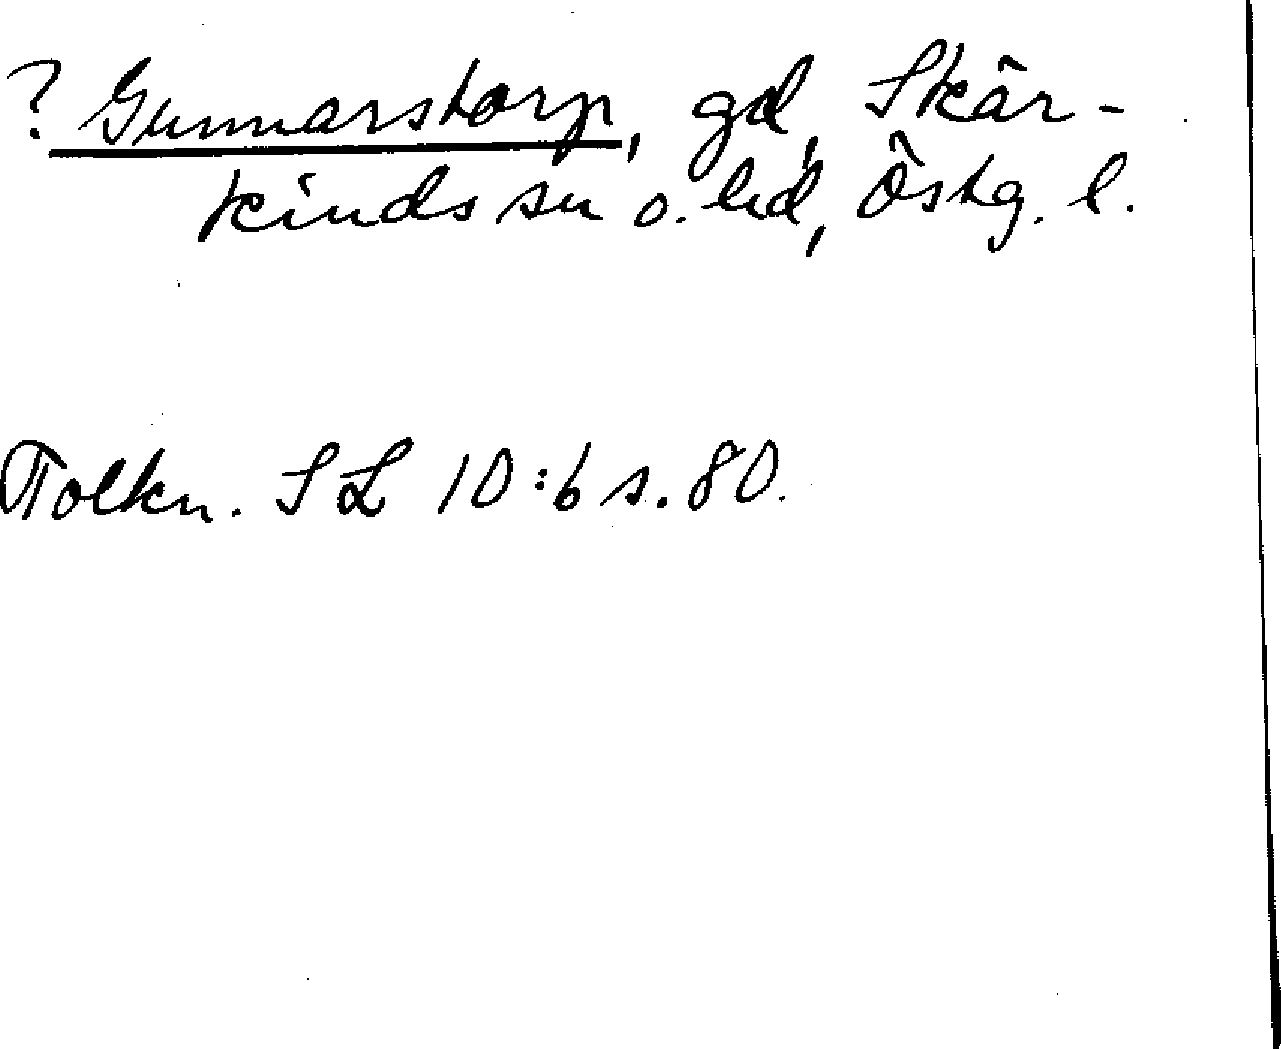 ? Gunnarstorp, gd, Skär-
kinds sn o. hd, Östg. l.
Tolkn. SL 10:6 s. 80.